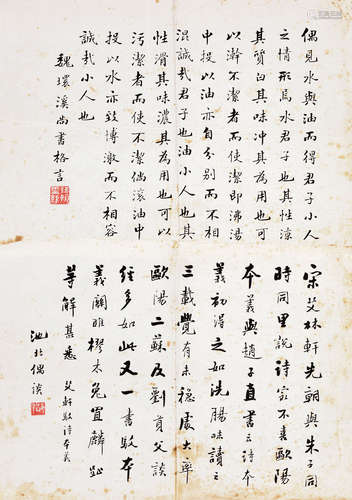 偶見水與油而得君子小人
之情形焉水君子也其性涼
其質白其味冲其爲用也可
以澣不潔者而使潔即沸湯
中投以油亦自分別而不相
混誠哉君子也油小人也其
性滑其味濃其爲用也可以
污潔者而使不潔倘滾油中
投以水亦致搏激而不相容
誠哉小人也
魏環溪尚書格言
宋艾林軒朝與朱子同
時同里説詩不喜歐陽
本義與趙子直書云詩本
義初得之如洗腸味讀之
三載覺有未穩處大率
歐陽二蘇及劉貢父談
經多如此又一書駁本
義關雎樛木兔罝麟趾
等解甚悉
艾軒駁詩本義
池北偶談